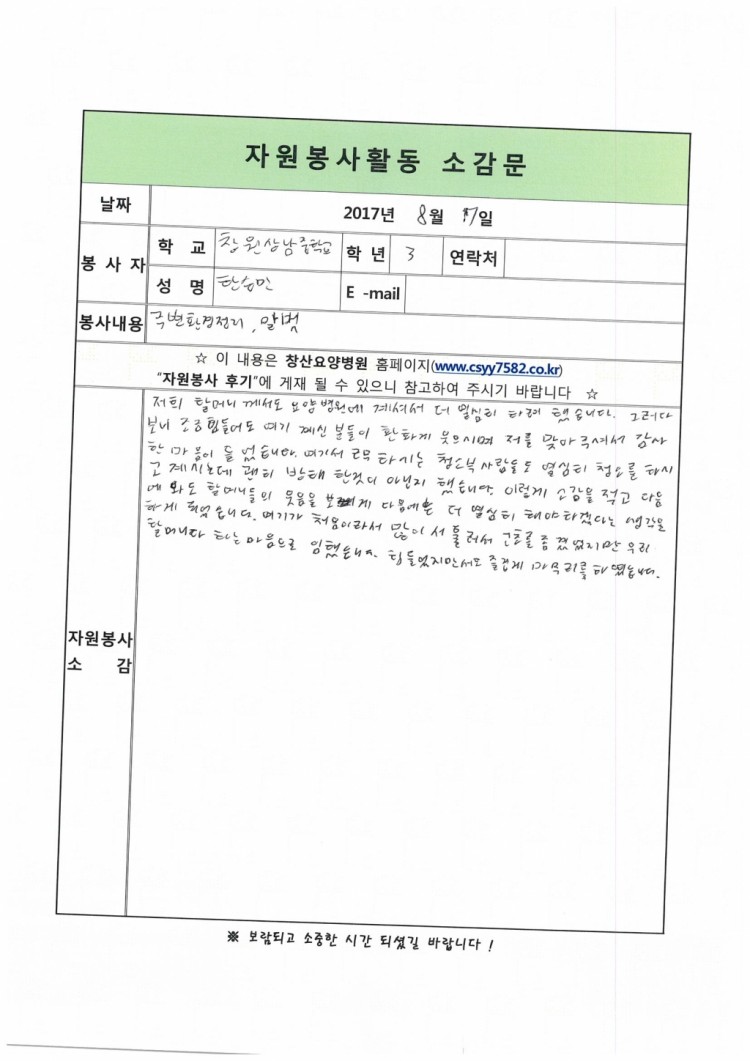 자원봉사활동 소감문
날짜 2017년 8월 17일
봉사자 학 교 창원상남중학교 학 년 3 연락처
성 명 탄승민 E -mail
봉사내용 주변환경정리, 말벗
☆ 이 내용은 창산요양병원 홈페이지(www.csyy7582.co.kr)
"자원봉사 후기"에 게재 될 수 있으니 참고하여 주시기 바랍니다 ☆
저희 할머니께서도 요양병원에 계셔서 더 열심히 하려 했습니다. 그러다
보니 조금 힘들어도 여기 계신 분들이 환하게 웃으시며 저를 맞아주셔서 감사
한 마음이 들었습니다. 여기서 근무 하시는 청소부 사람들도 열심히 청소를 하시
고 계시는데 괜히 방해 한것이 아닌지 했습니다. 이렇게 소감을 적고 다음
에 와도 할머니들의 웃음을 보게 다음에는 더 열심히 해야하겠다는 생각을
하게 되었습니다. 여기가 처음이라서 많이 서툴러서 좀 꼈었지만 우리
할머니다 하는 마음으로 임했습니다. 힘들었지만서도 즐겁게 마무리를 하였습니다.
자원봉사
소 감
※ 보람되고 소중한 시간 되셨길 바랍니다 !